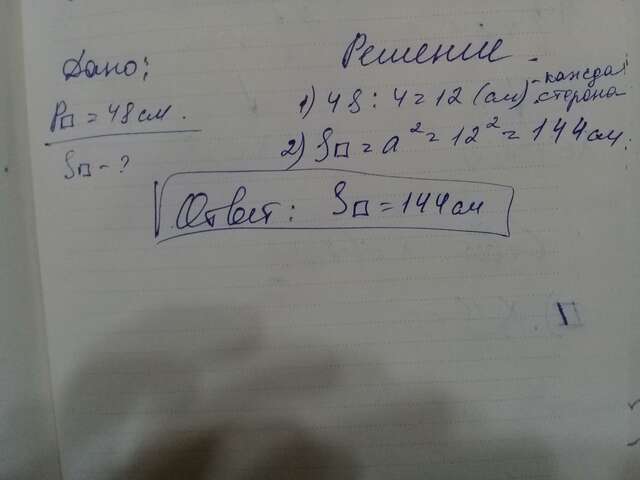 Дано:
P□ = 48 см.
S□ - ?
Решение.
1) 48 : 4 = 12 (см) - каждая сторона
2) S□ = a² = 12² = 144 см.
Ответ: S□ = 144 см